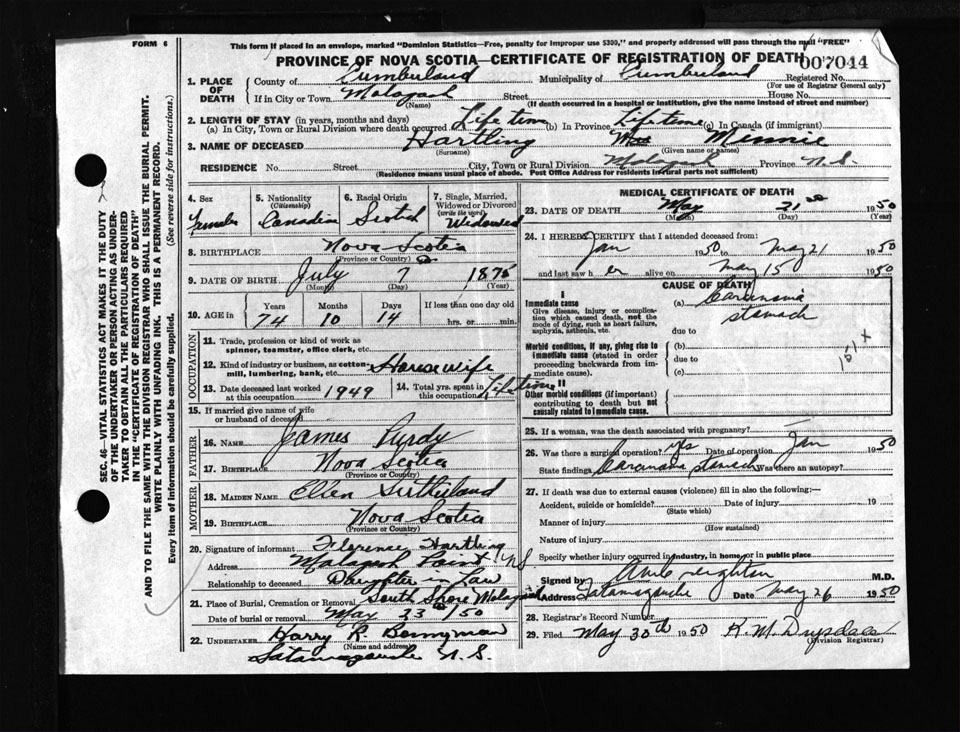 FORM 6
This form if placed in an envelope, marked "Dominion Statistics—Free, penalty for improper use $300," and properly addressed will pass through the mail "FREE"
PROVINCE OF NOVA SCOTIA—CERTIFICATE OF REGISTRATION OF DEATH
007044
1. PLACE OF DEATH
County of Cumberland Municipality of Cumberland Registered No.
(For use of Registrar General only)
If in City or Town Malagash Street House No.
(Name) (If death occurred in a hospital or institution, give the name instead of street and number)
2. LENGTH OF STAY (in years, months and days)
(a) In City, Town or Rural Division where death occurred Life time (b) In Province Lifetime (c) In Canada (if immigrant)
3. NAME OF DECEASED Hartling Mrs Minnie
(Surname) (Given name or names)
RESIDENCE No. Street City, Town or Rural Division Malagash Province N.S.
(Residence means usual place of abode. Post Office Address for residents in rural parts not sufficient)
4. Sex Female
5. Nationality (Citizenship) Canadian
6. Racial Origin Scotch
7. Single, Married, Widowed or Divorced (write the word) Widowed
8. BIRTHPLACE Nova Scotia
(Province or Country)
9. DATE OF BIRTH July 7 1875
(Month) (Day) (Year)
10. AGE in Years 74 Months 10 Days 14 If less than one day old hrs. or min.
OCCUPATION
11. Trade, profession or kind of work as spinner, teamster, office clerk, etc.
12. Kind of industry or business, as cotton mill, lumbering, bank, etc. Housewife
13. Date deceased last worked at this occupation 1949
14. Total yrs. spent in this occupation Lifetime
15. If married give name of wife or husband of deceased
FATHER
16. NAME James Purdy
17. BIRTHPLACE Nova Scotia
(Province or Country)
MOTHER
18. MAIDEN NAME Ellen Sutherland
19. BIRTHPLACE Nova Scotia
(Province or Country)
20. Signature of informant Florence Hartling
Address Malagash Point NS
Relationship to deceased Daughter in Law
21. Place of Burial, Cremation or Removal South Shore Malagash
Date of burial or removal May 23 1950
22. UNDERTAKER Harry R. Bonnyman
(Name and address)
Tatamagouche N.S.
MEDICAL CERTIFICATE OF DEATH
23. DATE OF DEATH May 21st 1950
(Month) (Day) (Year)
24. I HEREBY CERTIFY that I attended deceased from:
Jan 1950 to May 21 1950
and last saw h er alive on May 15 1950
CAUSE OF DEATH
I
Immediate cause
Give disease, injury or complication which caused death, not the mode of dying, such as heart failure, asphyxia, asthenia, etc.
(a) Carcinoma
stomach
due to
Morbid conditions, if any, giving rise to immediate cause (stated in order proceeding backwards from immediate cause).
(b)
due to
(c)
151 x
II
Other morbid conditions (if important) contributing to death but not causally related to immediate cause.
25. If a woman, was the death associated with pregnancy?
26. Was there a surgical operation? yes Date of operation Jan 1950
State findings Carcinoma stomach Was there an autopsy?
27. If death was due to external causes (violence) fill in also the following:—
Accident, suicide or homicide? Date of injury 19
(State which)
Manner of injury
(How sustained)
Nature of injury
Specify whether injury occurred in industry, in home, or in public place
Signed by Creighton M.D.
Address Tatamagouche Date May 26 1950
28. Registrar's Record Number
29. Filed May 30th 1950 K. M. Drysdale
(Division Registrar)
SEC. 46—VITAL STATISTICS ACT MAKES IT THE DUTY
OF THE UNDERTAKER OR PERSON ACTING AS UNDERTAKER TO OBTAIN ALL THE PARTICULARS REQUIRED
IN THE "CERTIFICATE OF REGISTRATION OF DEATH"
AND TO FILE THE SAME WITH THE DIVISION REGISTRAR WHO SHALL ISSUE THE BURIAL PERMIT.
WRITE PLAINLY WITH UNFADING INK. THIS IS A PERMANENT RECORD.
Every item of information should be carefully supplied. (See reverse side for instructions.)